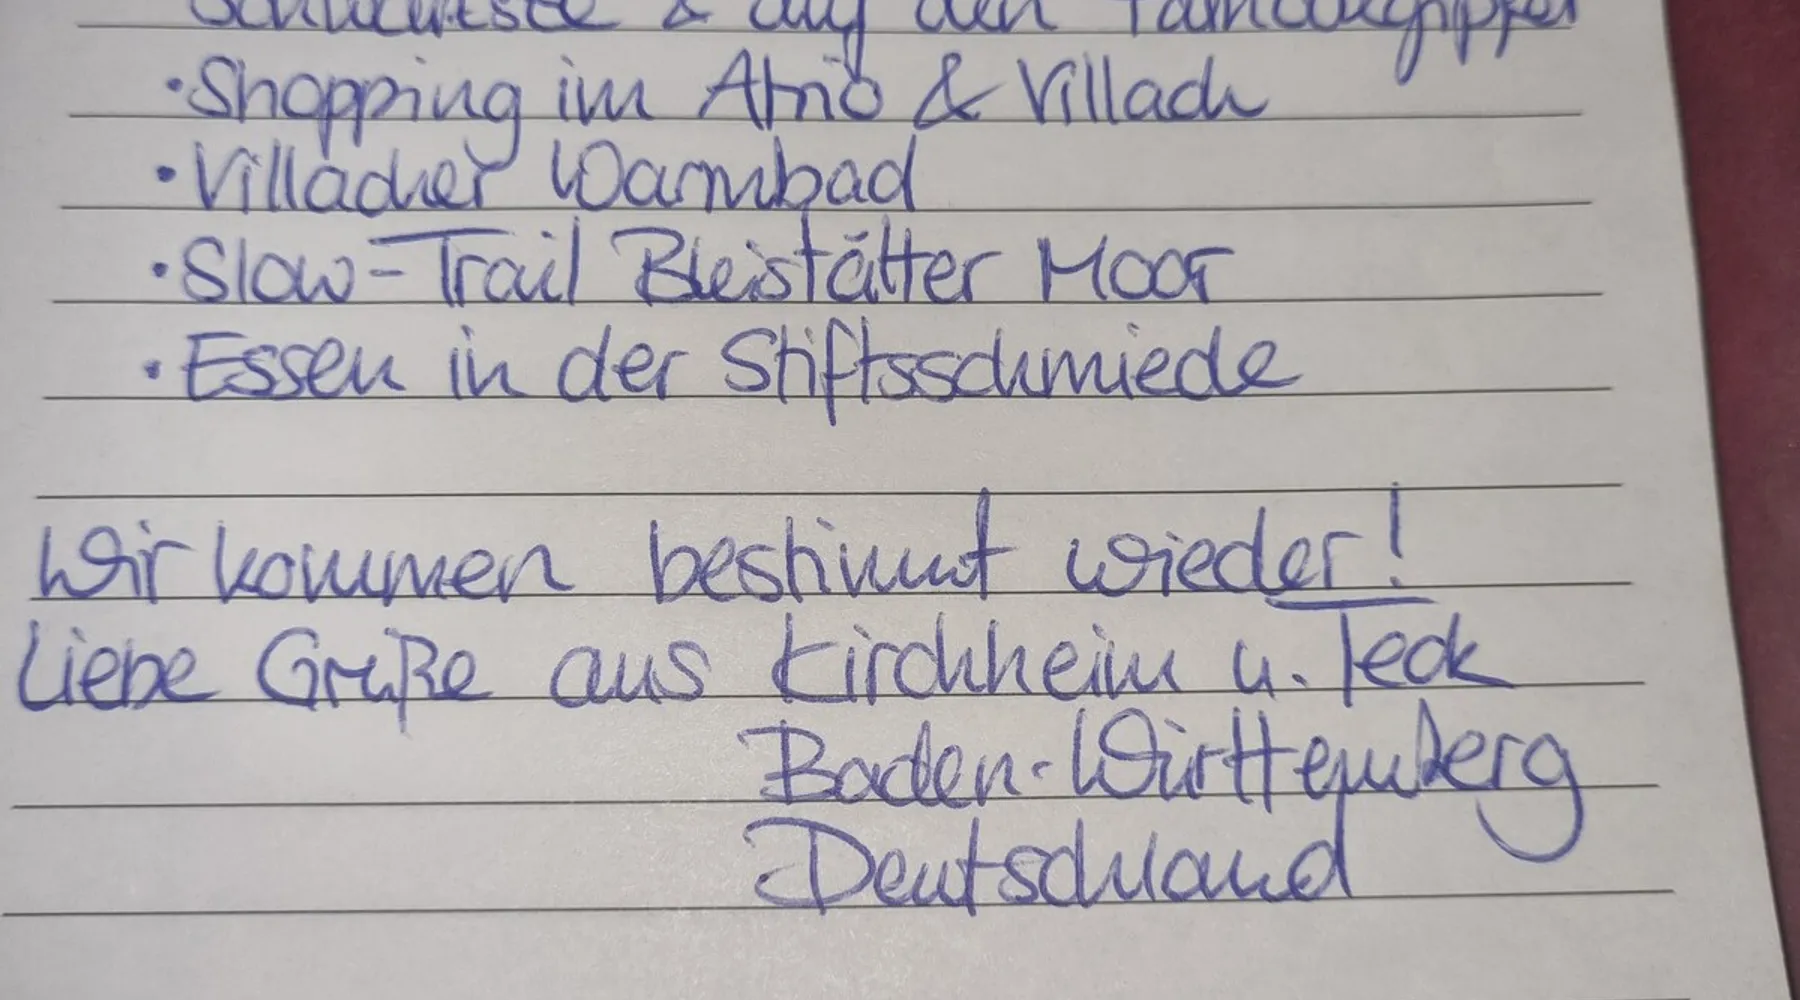 & auf den
•Shopping im Atrio & Villach
•Villacher Warmbad
•Slow-Trail Bleistätter Moor
•Essen in der Stiftsschmiede
Wir kommen bestimmt wieder!
Liebe Grüße aus Kirchheim u. Teck
Baden-Württemberg
Deutschland